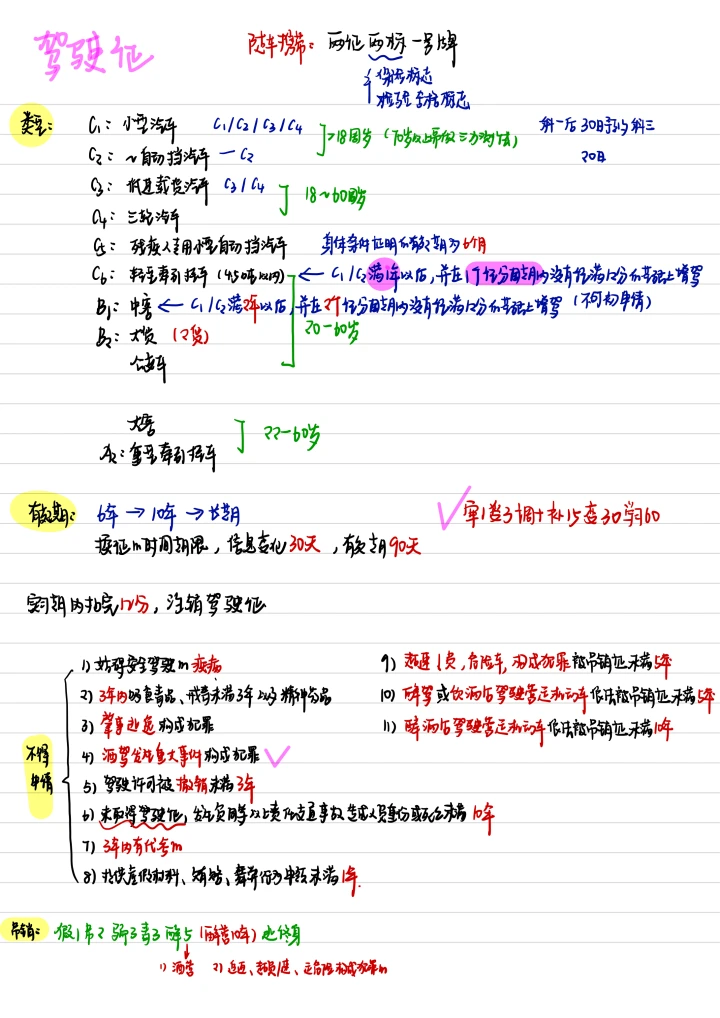 驾驶证
随车携带：两证两标一号牌
保险标志
检验合格标志
类型：
C₁：小型汽车 C₁/C₂/C₃/C₄
C₂：~自动挡汽车 — C₂
>18周岁（70岁以上需做三力测试）
科一后30日预约科三
20日
C₃：低速载货汽车 C₃/C₄
18~60周岁
C₄：三轮汽车
C₅：残疾人专用小型自动挡汽车 身体条件证明有效期为6个月
C₆：轻型牵引挂车（4500kg以内）← C₁/C₂满1年以后，并在1个记分周期内没有记满12分的基础上增驾
B₁：中客 ← C₁/C₂满2年以后，并在2个记分周期内没有记满12分的基础上增驾（不可初申请）
B₂：大货（2货）
20-60岁
公交车
大客
22-60岁
A₂：重型牵引挂车
有效期：6年→10年→长期
✓审1登3调十补15查30学60
换证的时间期限，信息变化30天，有效期90天
实习期内扣完12分，注销驾驶证
不得申请
1）妨碍安全驾驶的疾病
2）3年内吸食毒品、戒毒未满3年以及精神药品
3）肇事逃逸构成犯罪
4）酒驾发生重大事件构成犯罪 ✓
5）驾驶许可被撤销未满3年
6）未取得驾驶证，发生负同等以上责任交通事故造成人员重伤或死亡未满10年
7）3年内有代考的
8）提供虚假材料、贿赂、舞弊行为申领未满1年.
9）超速、超员，危险车，构成犯罪被吊销证未满5年
10）醉驾或饮酒后驾驶营运机动车依法被吊销证未满5年
11）醉酒后驾驶营运机动车依法被吊销证未满10年
吊销：假1吊2骗3毒3醉5（醉营10年）逃终身
1）酒营 2）追逐、超员/速、运危险构成犯罪的